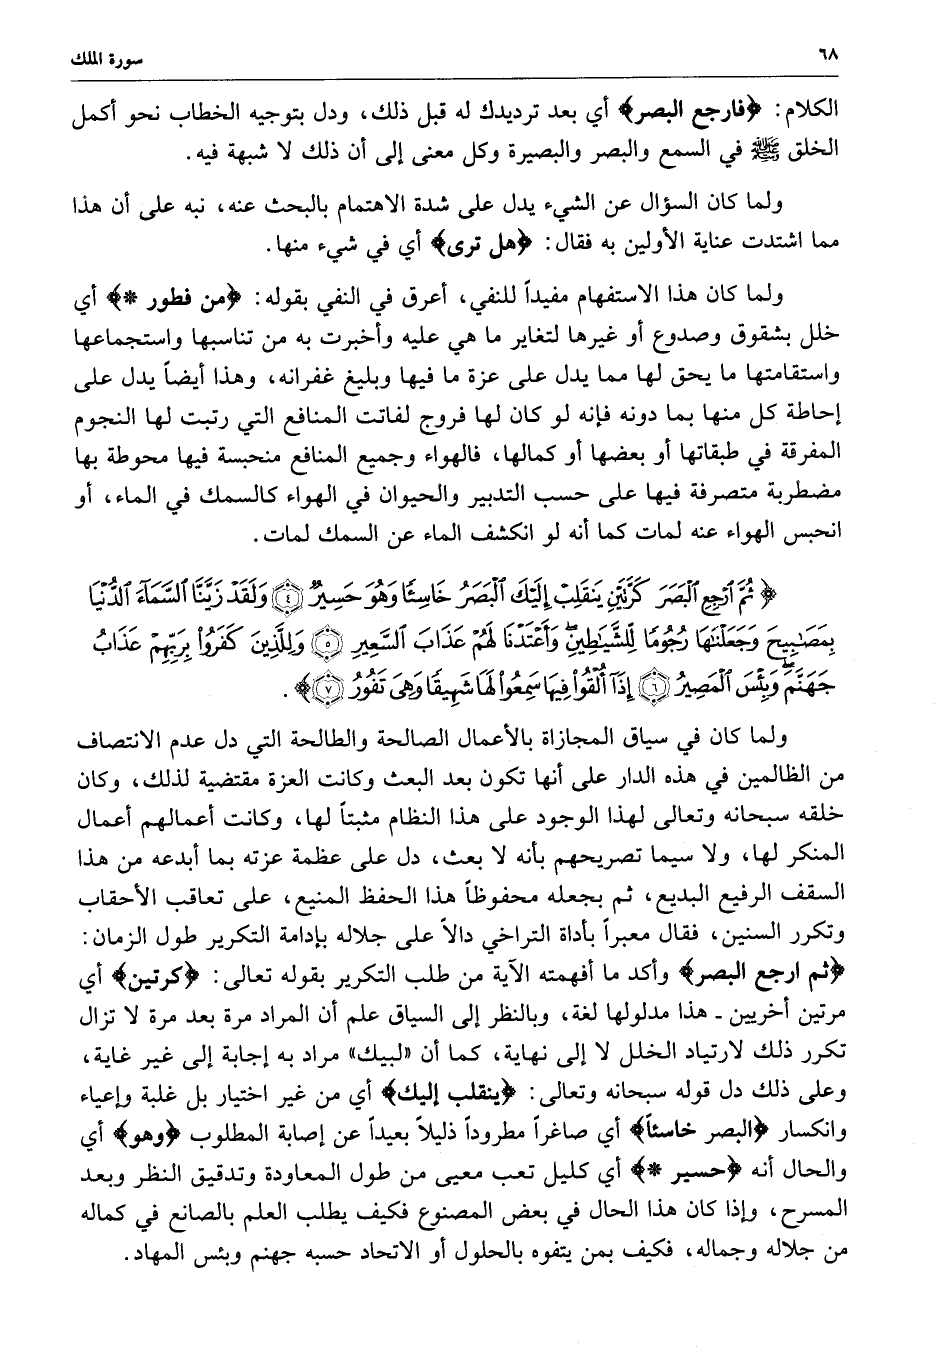 ٦٨ سورة الملك
الكلام: ﴿فارجع البصر﴾ أي بعد ترديدك له قبل ذلك، ودل بتوجيه الخطاب نحو أكمل
الخلق ﷺ في السمع والبصر والبصيرة وكل معنى إلى أن ذلك لا شبهة فيه.
ولما كان السؤال عن الشيء يدل على شدة الاهتمام بالبحث عنه، نبه على أن هذا
مما اشتدت عناية الأولين به فقال: ﴿هل ترى﴾ أي في شيء منها.
ولما كان هذا الاستفهام مفيداً للنفي، أعرق في النفي بقوله: ﴿من فطور *﴾ أي
خلل بشقوق وصدوع أو غيرها لتغاير ما هي عليه وأخبرت به من تناسبها واستجماعها
واستقامتها ما يحق لها مما يدل على عزة ما فيها وبليغ غفرانه، وهذا أيضاً يدل على
إحاطة كل منها بما دونه فإنه لو كان لها فروج لفاتت المنافع التي رتبت لها النجوم
المفرقة في طبقاتها أو بعضها أو كمالها، فالهواء وجميع المنافع منحبسة فيها محوطة بها
مضطربة متصرفة فيها على حسب التدبير والحيوان في الهواء كالسمك في الماء، أو
انحبس الهواء عنه لمات كما أنه لو انكشف الماء عن السمك لمات.
﴿ثُمَّ ٱرْجِعِ ٱلْبَصَرَ كَرَّتَيْنِ يَنقَلِبْ إِلَيْكَ ٱلْبَصَرُ خَاسِئًا وَهُوَ حَسِيرٌ ﴿٤﴾ وَلَقَدْ زَيَّنَّا ٱلسَّمَآءَ ٱلدُّنْيَا
بِمَصَٰبِيحَ وَجَعَلْنَٰهَا رُجُومًا لِّلشَّيَٰطِينِ ۖ وَأَعْتَدْنَا لَهُمْ عَذَابَ ٱلسَّعِيرِ ﴿٥﴾ وَلِلَّذِينَ كَفَرُوا۟ بِرَبِّهِمْ عَذَابُ
جَهَنَّمَ ۖ وَبِئْسَ ٱلْمَصِيرُ ﴿٦﴾ إِذَآ أُلْقُوا۟ فِيهَا سَمِعُوا۟ لَهَا شَهِيقًا وَهِىَ تَفُورُ ﴿٧﴾﴾.
ولما كان في سياق المجازاة بالأعمال الصالحة والطالحة التي دل عدم الانتصاف
من الظالمين في هذه الدار على أنها تكون بعد البعث وكانت العزة مقتضية لذلك، وكان
خلقه سبحانه وتعالى لهذا الوجود على هذا النظام مثبتاً لها، وكانت أعمالهم أعمال
المنكر لها، ولا سيما تصريحهم بأنه لا بعث، دل على عظمة عزته بما أبدعه من هذا
السقف الرفيع البديع، ثم بجعله محفوظاً هذا الحفظ المنيع، على تعاقب الأحقاب
وتكرر السنين، فقال معبراً بأداة التراخي دالاً على جلاله بإدامة التكرير طول الزمان:
﴿ثم ارجع البصر﴾ وأكد ما أفهمته الآية من طلب التكرير بقوله تعالى: ﴿كرتين﴾ أي
مرتين أخريين - هذا مدلولها لغة، وبالنظر إلى السياق علم أن المراد مرة بعد مرة لا تزال
تكرر ذلك لارتياد الخلل لا إلى نهاية، كما أن «لبيك» مراد به إجابة إلى غير غاية،
وعلى ذلك دل قوله سبحانه وتعالى: ﴿ينقلب إليك﴾ أي من غير اختيار بل غلبة وإعياء
وانكسار ﴿البصر خاسئاً﴾ أي صاغراً مطروداً ذليلاً بعيداً عن إصابة المطلوب ﴿وهو﴾ أي
والحال أنه ﴿حسير *﴾ أي كليل تعب معيى من طول المعاودة وتدقيق النظر وبعد
المسرح، وإذا كان هذا الحال في بعض المصنوع فكيف يطلب العلم بالصانع في كماله
من جلاله وجماله، فكيف بمن يتفوه بالحلول أو الاتحاد حسبه جهنم وبئس المهاد.